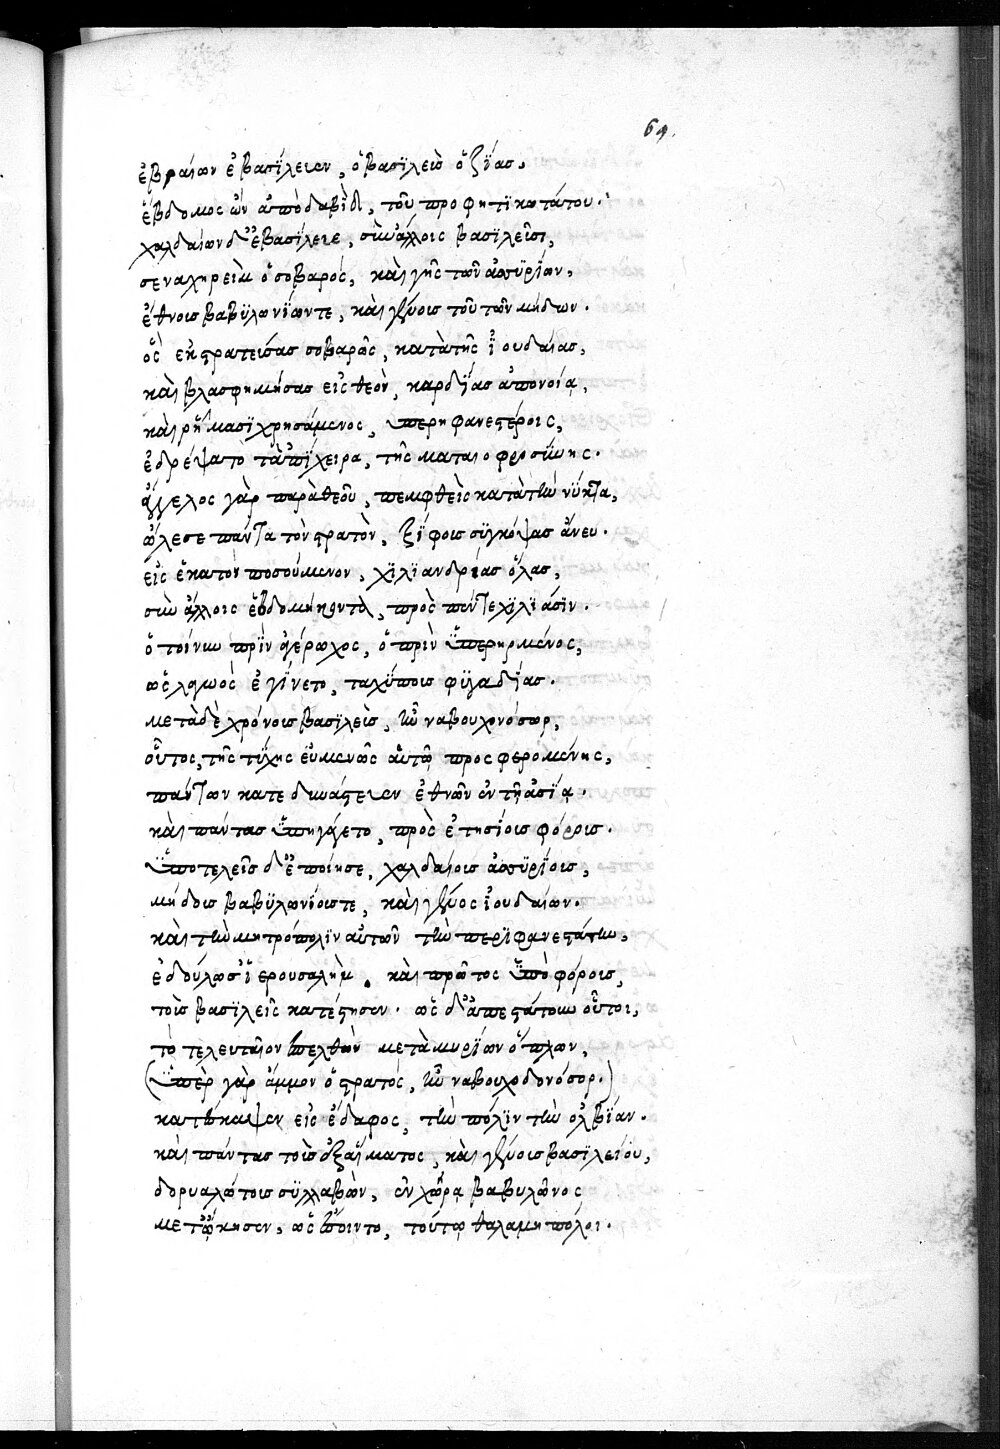 64.
ἑβραίων ἐβασίλευεν, ὁ βασϊλεὺσ ὀζΐασ,
ἕβδομος ὢν ἀπὸ δαβὶδ, τοῦ προφητϊκωτάτου.
χαλδαίων δ᾽ ἐβασίλευε, σὺν ἄλλοις βασϊλεῦσι,
σεναχηρεὶμ ὁ σοβαρὸς, καὶ γῆς τῶν ἀσσυρΐων,
ἔθνουσ βαβυλωνΐων τε, καὶ γένουσ τοῦ τῶν μήδων.
ὃς ἐκστρατεύσασ σοβαρῶς, κατὰ τῆς ἰουδαίασ,
καὶ βλασφημήσασ εἰς θεὸν, καρδΐασ ἀπονοίᾳ,
καὶ ῥήμασϊ χρησάμενος, ὑπερηφανεστέροις,
ἐδρέψατο τἀπΐχειρα, τῆς ματαιοφροσύνης.
ἄγγελος γὰρ παρὰ θεοῦ, πεμφθεὶς κατὰ τὴν νύκτα,
ὤλεσε πάντα τὸν στρατὸν, ξίφουσ συγκόψασ ἄνευ.
εἰς ἑκατὸν ποσούμενον, χϊλϊανδρίασ ὅλασ,
σὺν ἄλλοις ἑβδομήκοντα, πρὸς πέντε χϊλϊάσϊν.
ὁ τοίνυν πρὶν ἀγέρωχος, ὁ πρὶν ὑπερηρμένος,
ὡς λαγωὸς ἐγΐνετο, ταχύπουσ φυγαδΐασ.
μετὰ δὲ χρόνουσ βασϊλεὺσ, ἦν ναβουχονόσωρ,
οὗτος, τῆς τύχης εὐμενῶς αὐτῷ προσφερομένης,
πάντων κατεδυνάστευεν ἐθνῶν ἐν τῇ ἀσΐᾳ.
καὶ πάντασ ὑπηγάγετο, πρὸς ἐτησίουσ φόρουσ.
ὑποτελεῖσ δ᾽ ἐποίησε, χαλδαίουσ ἀσσυρΐουσ,
μήδουσ βαβυλωνΐουσ τε, καὶ γένος ἰουδαίων.
καὶ τὴν μητρόπολϊν αὐτῶν τὴν περϊφανεστάτην,
ἐδούλωσ᾽ ἱερουσαλὴμ. καὶ πρῶτος ὑπὸ φόρουσ,
τοὺσ βασϊλεῖς κατέστησεν. ὡς δ᾽ ἀπεστάτουν οὗτοι,
τὸ τελευταῖον ἐπελθὼν μετὰ μυρΐων ὅπλων,
(ὑπὲρ γὰρ ἄμμον ὁ στρατὸς, ἦν ναβουχοδονόσορ.)
κατέσκαψεν εἰς ἔδαφος, τὴν πόλϊν τὴν ὀλβΐαν.
καὶ πάντασ τοὺσ ἐξ αἵματος, καὶ γένουσ βασϊλείου,
δορυαλώτουσ συλλαβὼν, ἐν χώρᾳ βαβυλῶνος
μετῴκησεν, ὡς ᾤοιντο, τούτῳ θαλαμηπόλοι.